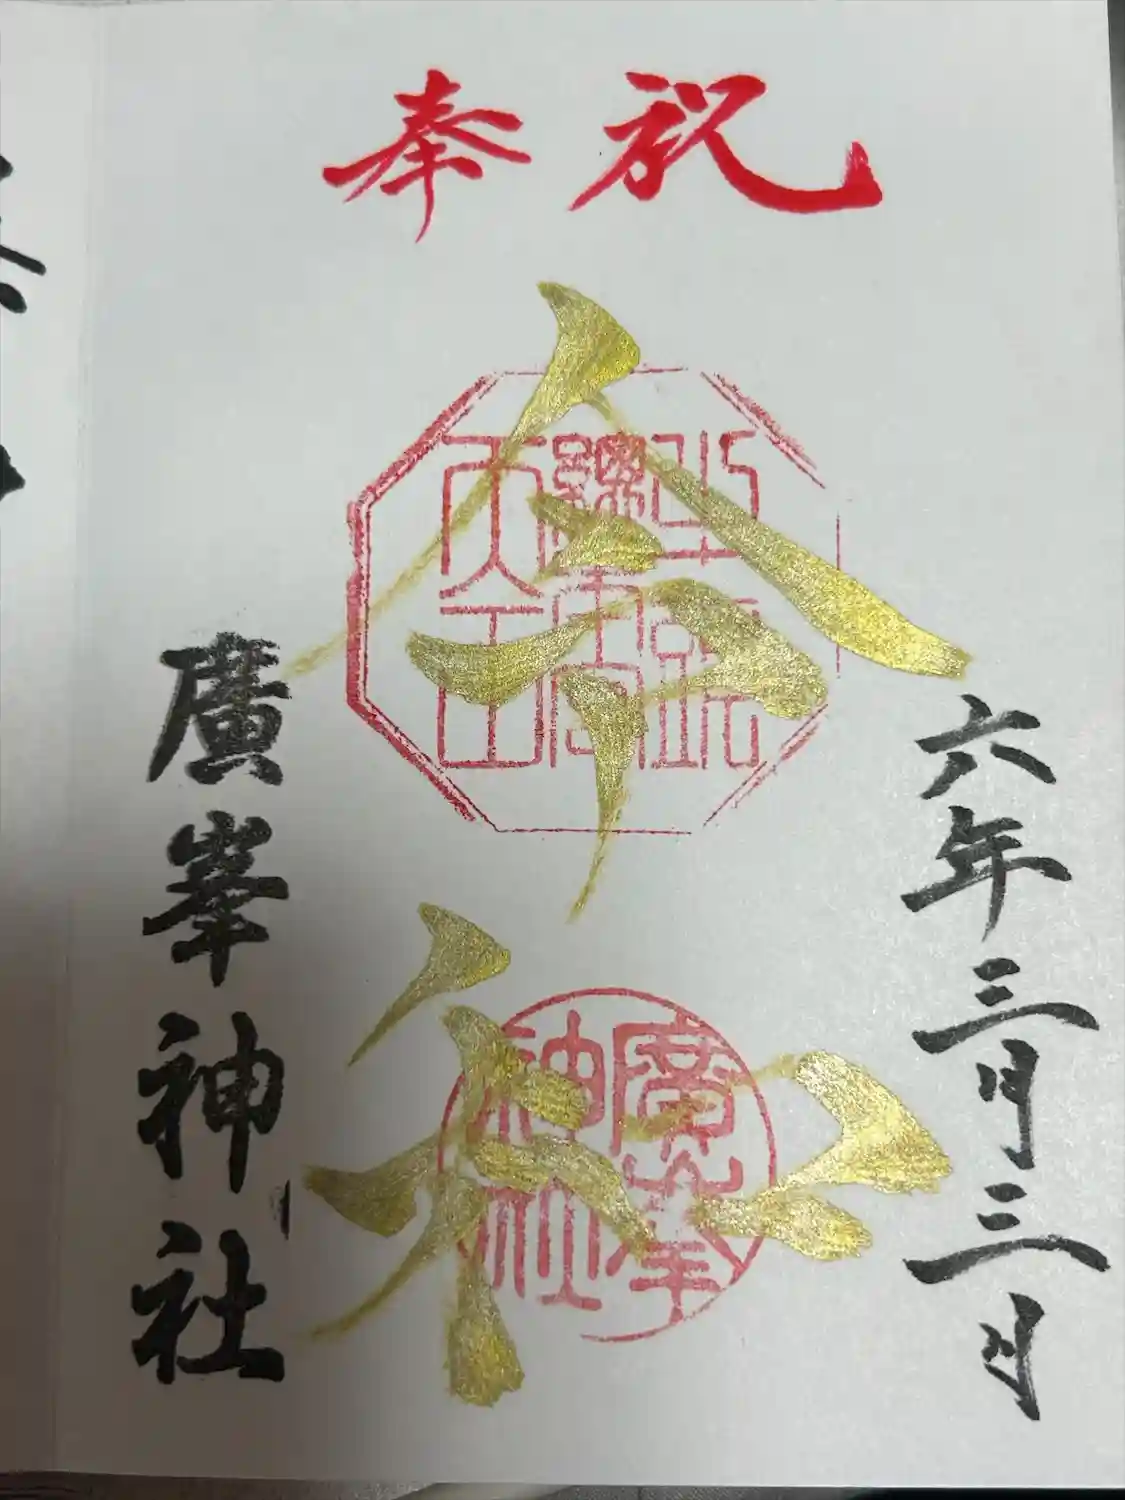 奉祝
令和
六年三月三日
廣峯
神社
廣峯神社